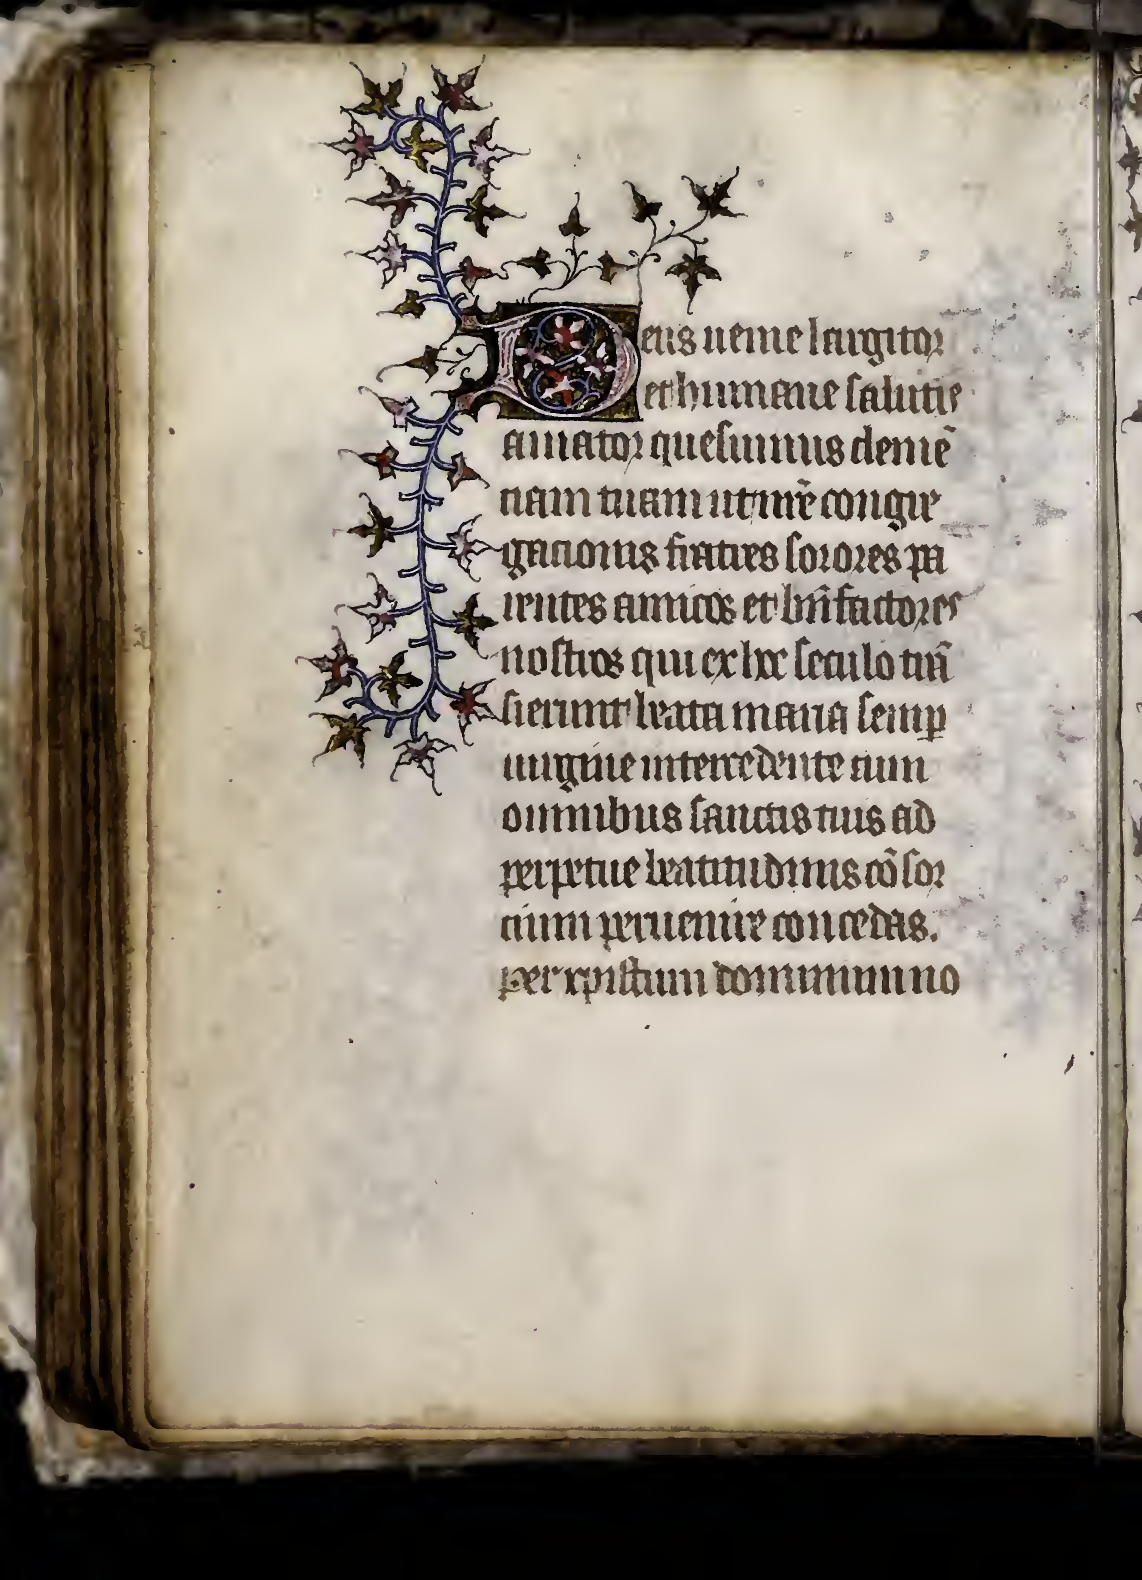 Deus uenie largitor
et humane salutis
amator quesumus clemē
tiam tuam ut nr̄e congre
gacionis fratres sorores pa
rentes amicos et bn̄factores
nostros qui ex hoc seculo trā
sierunt beata maria semꝑ
uirgine intercedente cum
omnibus sanctis tuis ad
perpetue beatitudinis cōsor
cium peruenire concedas.
per xpistum dominum no